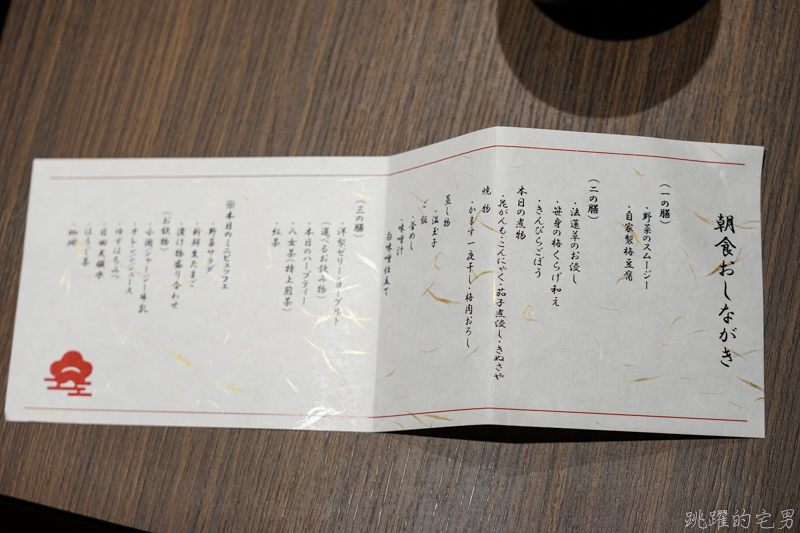 朝食おしながき
(一の膳)
・野菜のスムージー
・自家製梅豆腐
(二の膳)
・法蓮草のお浸し
・笹身の梅くらげ和え
・きんぴらごぼう
本日の煮物
・花がんも・こんにゃく・茄子煮浸し・きぬさや
焼物
・かます一夜干し・梅肉おろし
蒸し物
・温玉子
ご飯
・釜めし
・味噌汁
白味噌仕立て
(三の膳)
・洋梨ゼリーヨーグルト
(選べるお飲み物)
・本日のハーブティー
・八女茶(特上煎茶)
・紅茶
※本日のミニビュッフェ
・野菜サラダ
・新鮮生たまご
・漬け物盛り合わせ
(お飲物)
・小国ジャージー牛乳
・オレンジジュース
・ゆずはちみつ
・日田天領水
・ほうじ茶
・珈琲
跳躍的宅男